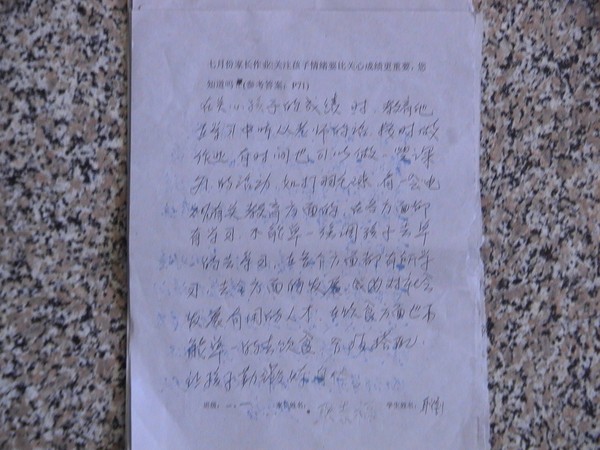 七月份家长作业:关注孩子情绪要比关心成绩更重要,您
知道吗?(参考答案:P71)
在关心孩子的成绩时,教育他
在学习中听从老师的话,按时做
作业,有时间也可以做一些课
外的活动,如打羽毛球,看一些电
视有关教育方面的,在各方面都
有学习,不能单一强调孩子去单
一的去学习,在各个方面都有所学
习,去全方面的发展,成为对社会
发展有用的人才,在饮食方面也不
能单一的去饮食,合理搭配,
让孩子勤锻炼身体
班级: 家长姓名: 学生姓名: